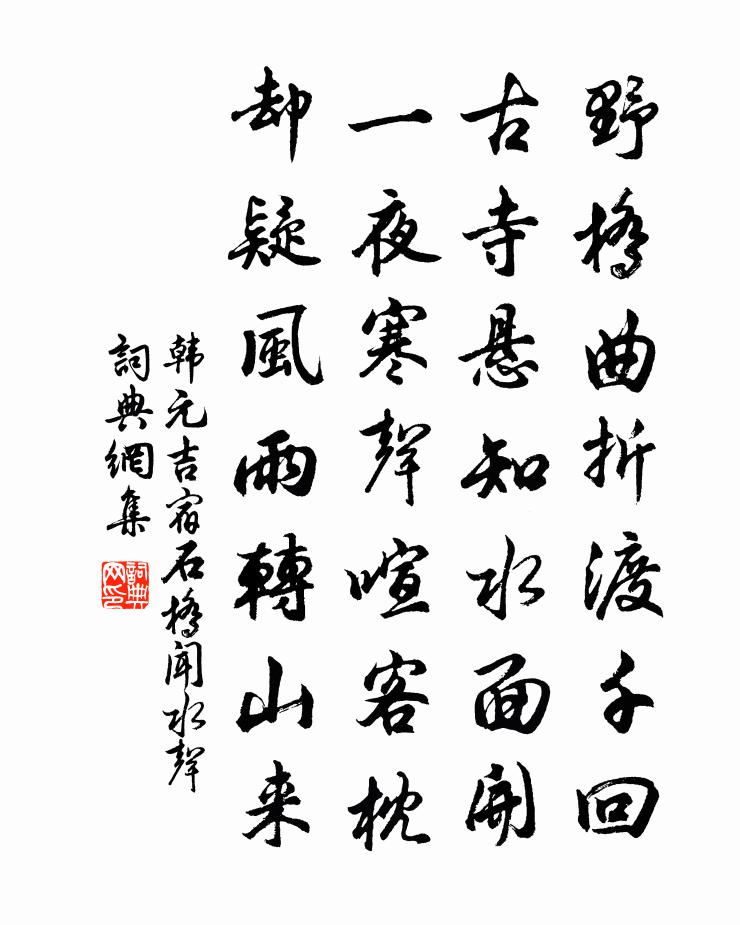 野橋曲折渡千回
古寺懸知水面開
一夜寒聲喧客枕
却疑風雨轉山来
韩元吉宿石橋聞水聲
詞典網集
詞典網印